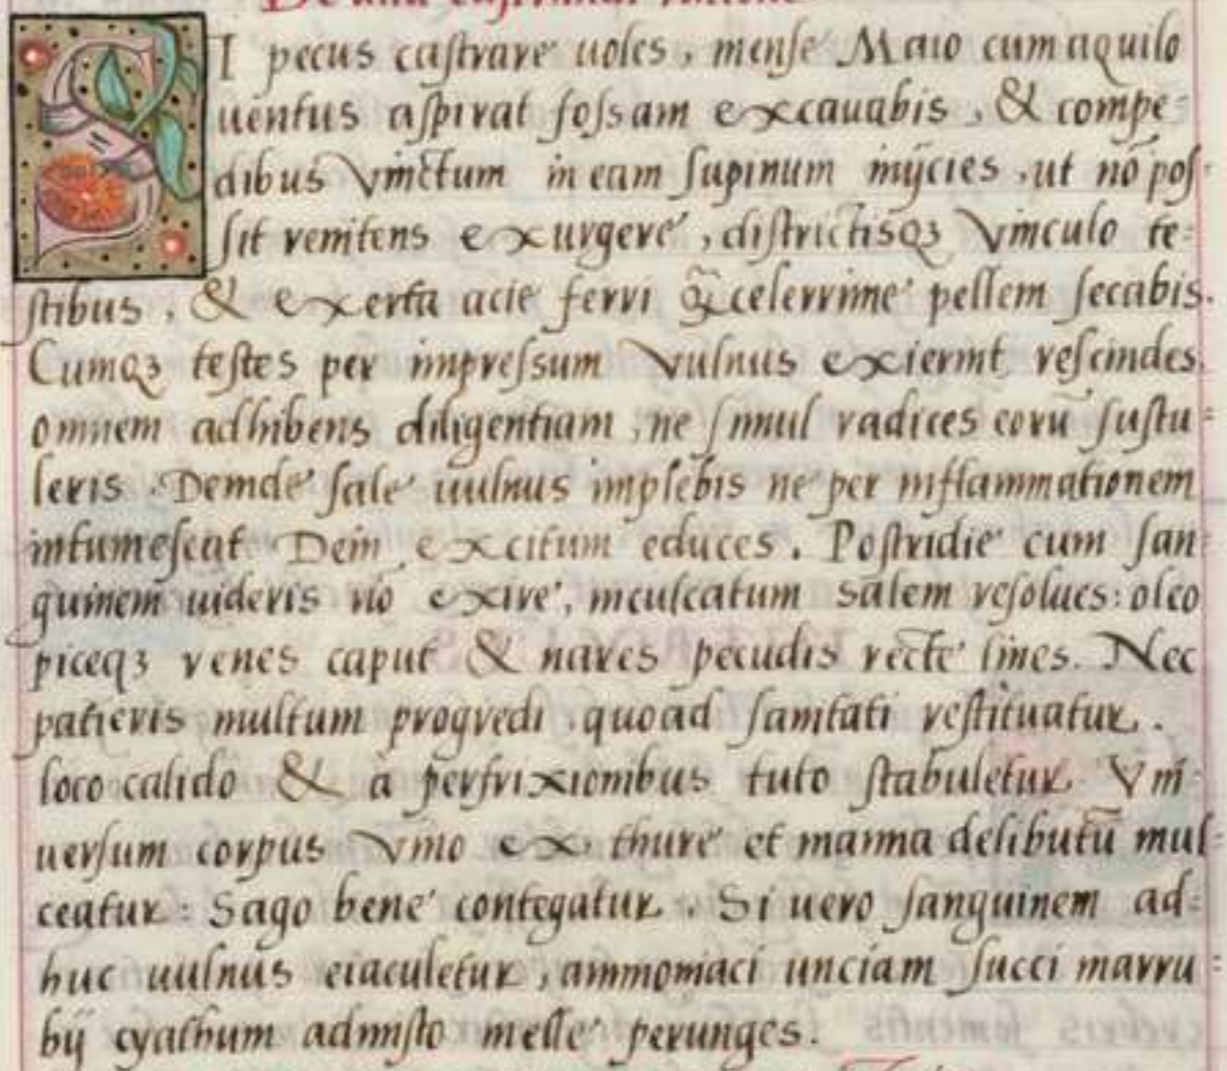 De alia castrandi ratione
SI pecus caſtrare uoles, menſe Maio cum aquilo
uentus aſpirat foſsam excauabis, & compe=
dibus vinctum in eam ſupinum inijcies, ut nō poſ-
ſit renitens exurgere, diſtrictisqꝫ vinculo te=
ſtibus, & exerta acie ferri q̃celerrime pellem ſecabis.
Cumqꝫ teſtes per impreſsum vulnus exierint reſcindes,
omnem adhibens diligentiam, ne ſimul radices eorū ſuſtu=
leris. Deinde ſale uulnus implebis ne per inflammationem
intumeſcat Dein excitum educes. Poſtridie cum ſan=
guinem uideris nō exire, inculcatum salem reſolues: oleo
piceqꝫ renes caput & nares pecudis recte lines. Nec
patieris multum progredi quoad ſanitati reſtituatur.
loco calido & à perfrixionibus tuto ſtabuletur Vni=
uerſum corpus vino ex thure et manna delibutū mul=
ceatur: Sago bene contegatur. Si uero ſanguinem ad=
huc uulnus eiaculetur, ammoniaci unciam ſucci marru=
bij cyathum admiſto melle perunges.